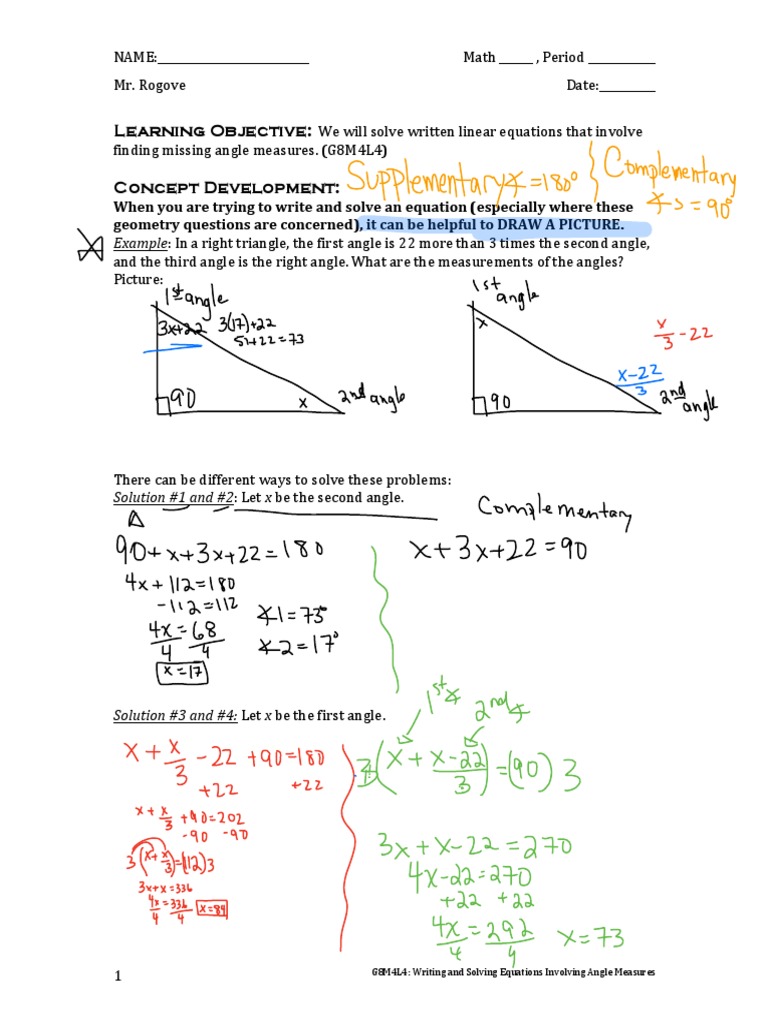 NAME:______________________ Math _____ , Period __________
Mr. Rogove Date:________
LEARNING OBJECTIVE: We will solve written linear equations that involve
finding missing angle measures. (G8M4L4)
Supplementary ∡ = 180°
Complementary
∡s = 90°
CONCEPT DEVELOPMENT:
When you are trying to write and solve an equation (especially where these
geometry questions are concerned), it can be helpful to DRAW A PICTURE.
Example: In a right triangle, the first angle is 22 more than 3 times the second angle,
and the third angle is the right angle. What are the measurements of the angles?
Picture:
1st angle
3x+22 3(17)+22
51+22=73
90
x
2nd angle
1st
angle
x
90
x/3 - 22
x-22/3
2nd
angle
There can be different ways to solve these problems:
Solution #1 and #2: Let x be the second angle.
90+x+3x+22=180
4x+112=180
-112=112
4x=68
4 4
x=17
∡1=73°
∡2=17°
Complementary
x+3x+22=90
Solution #3 and #4: Let x be the first angle.
x + x/3 - 22 + 90 = 180
+22 +22
x + x/3 + 90 = 202
-90 -90
3(x + x/3) = (112)3
3x+x=336
4x=336
4 4
x=84
1st ∡ 2nd ∡
3(x + x-22/3) = (90)3
3x+x-22=270
4x-22=270
+22 +22
4x=292
4 4
x=73
1 G8M4L4: Writing and Solving Equations Involving Angle Measures